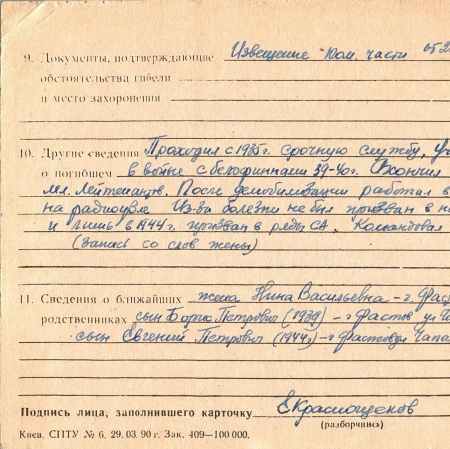 9. Документы, подтверждающие Извещение ком. части от 2
обстоятельства гибели
и место захоронения
10. Другие сведения Проходил с 1935г. срочную службу, уч
о погибшем в войне с белофиннами 39-40г. Окончил
мл. лейтенантов. После демобилизации работал в
на радиоузле Из-за болезни не был призван в на
и лишь в 1944 г. призван в ряды СА. Командовал
(запись со слов жены)
11. Сведения о ближайших жена Нина Васильевна - г. Фаст
родственниках сын Борис Петрович (1939) - г Фастов ул
сын Евгений Петрович (1944) - г Фастов ул Чапа
Подпись лица, заполнившего карточку ЕКраснощеков
(разборчиво)
Киев, СПТУ № 6, 29. 03. 90 г. Зак. 409—100 000.